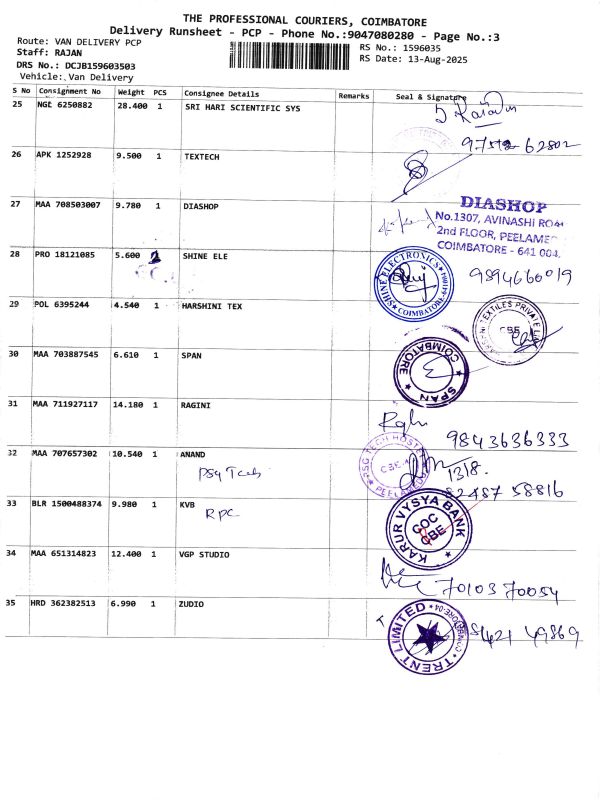 THE PROFESSIONAL COURIERS, COIMBATORE
Delivery Runsheet - PCP - Phone No.:9047080280 - Page No.:3
Route: VAN DELIVERY PCP
RS No.: 1596035
Staff: RAJAN
RS Date: 13-Aug-2025
DRS No.: DCJB159603503
Vehicle: Van Delivery
S No Consignment No Weight PCS Consignee Details Remarks Seal & Signature
25 NGL 6250882 28.400 1 SRI HARI SCIENTIFIC SYS
26 APK 1252928 9.500 1 TEXTECH
27 MAA 708503007 9.780 1 DIASHOP
DIASHOP
No.1307, AVINASHI ROAD
2nd FLOOR, PEELAME
COIMBATORE - 641 004.
28 PRO 18121085 5.600 SHINE ELE
SHINE ELECTRONICS
COIMBATORE-641004
9894660019
29 POL 6395244 4.540 1 HARSHINI TEX
TEXTILES PRIVATE LI
CBE
30 MAA 703887545 6.610 1 SPAN
COIMBATORE
SPAN
31 MAA 711927117 14.180 1 RAGINI
9843636333
32 MAA 707657302 10.540 1 ANAND
PSG Tech
PSG TECH HOSTEL
CBE-4
PEELAMEDU
13/8.
82487 58816
33 BLR 1500488374 9.980 1 KVB
RPC
KARUR VYSYA BANK
COC
CBE
34 MAA 651314823 12.400 1 VGP STUDIO
70103 70054
35 HRD 362382513 6.990 1 ZUDIO
TRENT LIMITED
COIMBATORE-04
98421 49869